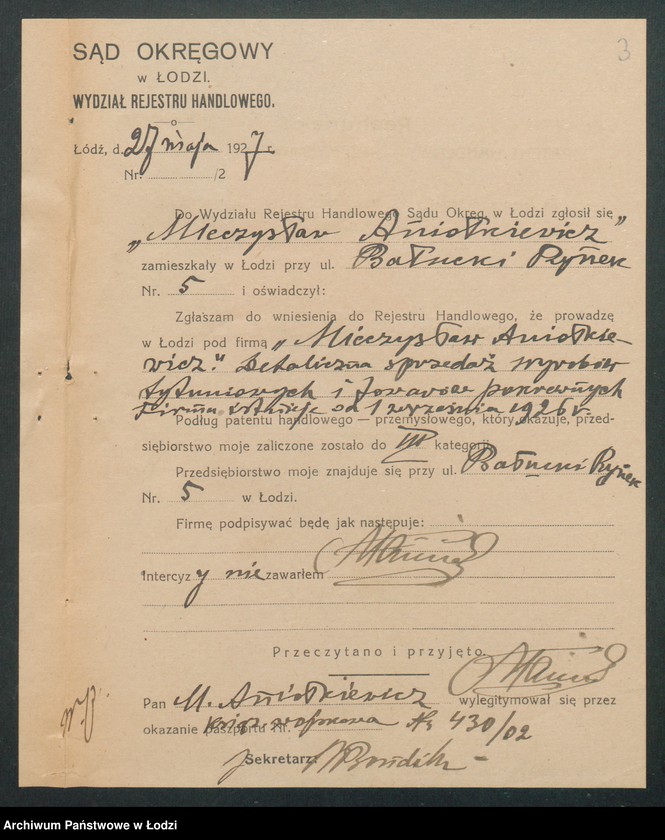 3
SĄD OKRĘGOWY
w ŁODZI.
WYDZIAŁ REJESTRU HANDLOWEGO.
Łódź, d. 27 maja 1927 r.
Nr. /2
Do Wydziału Rejestru Handlowego Sądu Okręg. w Łodzi zgłosił się
„Mieczysław Aniołkiewicz”
zamieszkały w Łodzi przy ul. Bałucki Rynek
Nr. 5 i oświadczył:
Zgłaszam do wniesienia do Rejestru Handlowego, że prowadzę
w Łodzi pod firmą „Mieczysław Aniołkie-
wicz”. Detaliczna sprzedaż wyrobów
tytuniowych i towarów pokrewnych
Firma istnieje od 1 września 1926 r.
Podług patentu handlowego — przemysłowego, który okazuje, przed-
siębiorstwo moje zaliczone zostało do III kategorji.
Przedsiębiorstwo moje znajduje się przy ul. Bałucki Rynek
Nr. 5 w Łodzi.
Firmę podpisywać będę jak następuje:
Intercyzy nie zawarłem
Przeczytano i przyjęto.
Pan M. Aniołkiewicz wylegitymował się przez
okazanie paszportu Nr. książ. wojskowa № 430/02
Sekretarz:
Archiwum Państwowe w Łodzi